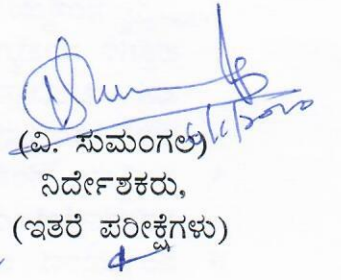 (ವಿ. ಸುಮಂಗಲ)
ನಿರ್ದೇಶಕರು,
(ಇತರೆ ಪರೀಕ್ಷೆಗಳು)